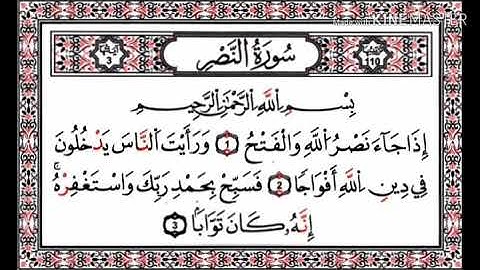 Made with KINEMASTER
آياتها 3
سُورَةُ النَّصْرِ
110
بِسْمِ اللَّهِ الرَّحْمَٰنِ الرَّحِيمِ
إِذَا جَاءَ نَصْرُ اللَّهِ وَالْفَتْحُ 1 وَرَأَيْتَ النَّاسَ يَدْخُلُونَ
فِي دِينِ اللَّهِ أَفْوَاجًا 2 فَسَبِّحْ بِحَمْدِ رَبِّكَ وَاسْتَغْفِرْهُ ۚ
إِنَّهُ كَانَ تَوَّابًا 3